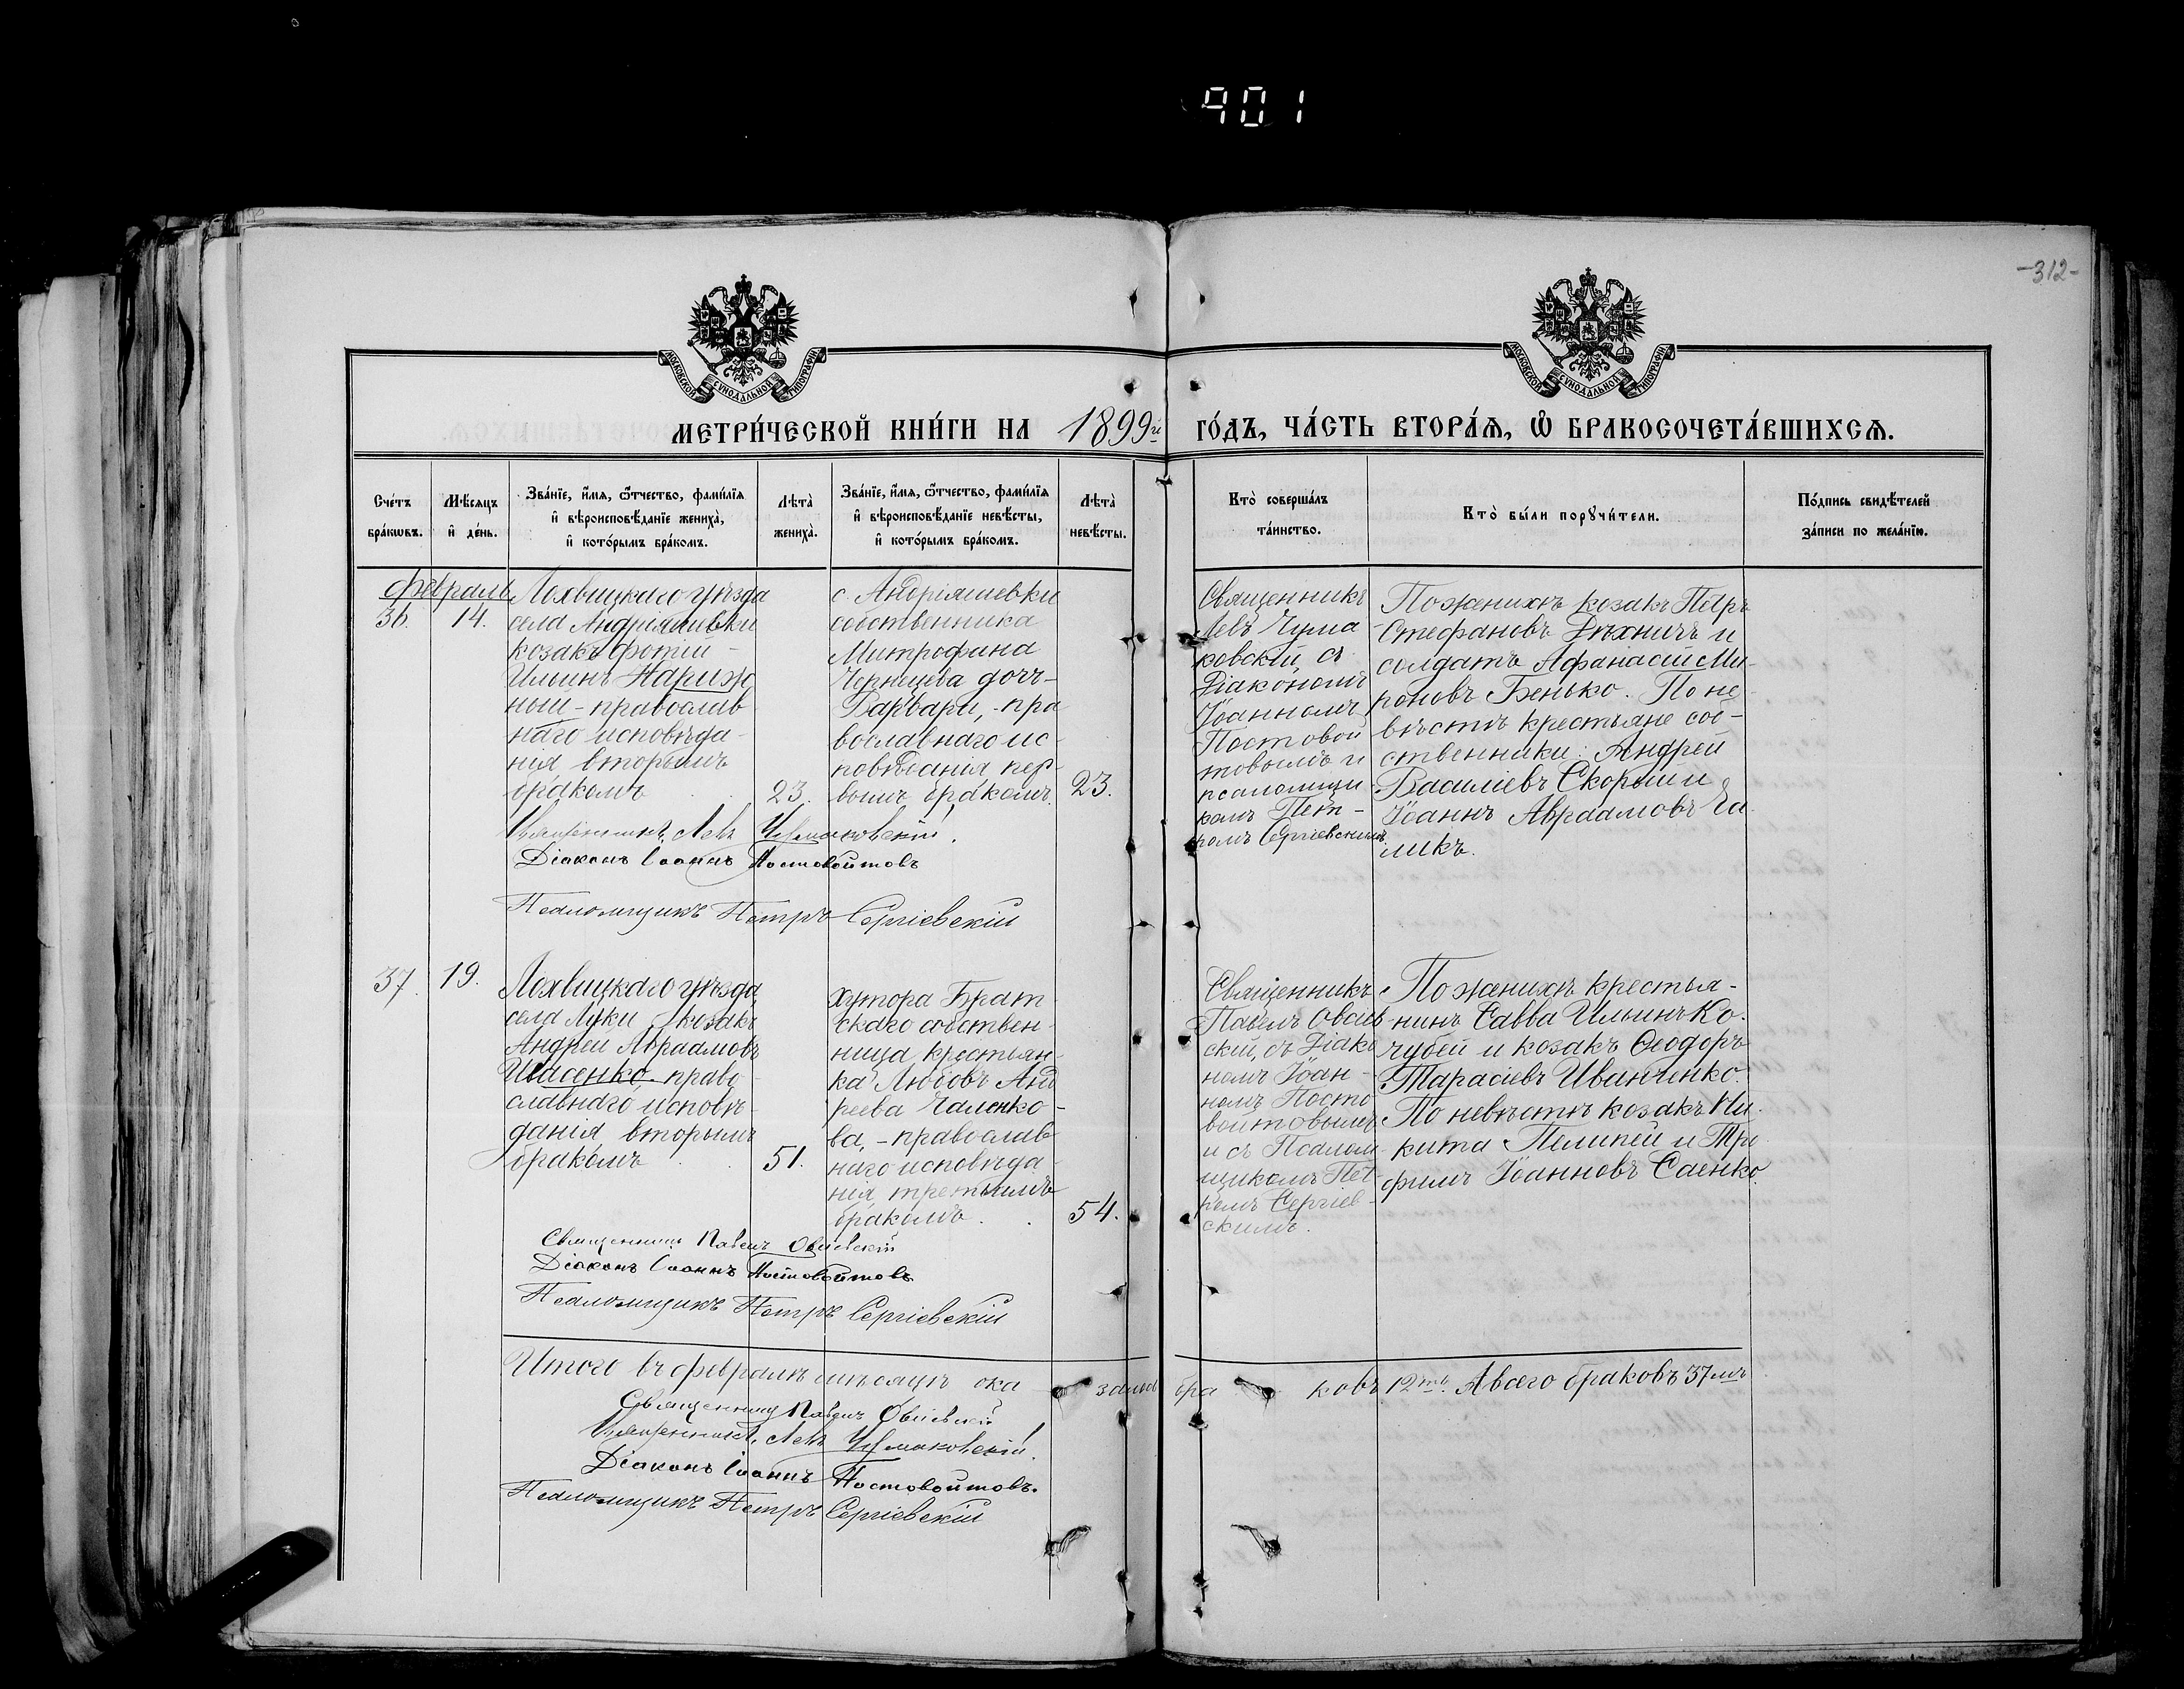 901
-312-
МОСКОВСКОЙ СѴНОДАЛЬНОЙ ТИПОГРАФІИ
МОСКОВСКОЙ СѴНОДАЛЬНОЙ ТИПОГРАФІИ
МЕТРИ́ЧЕСКОЙ КНИ́ГИ НА 1899й ГО́ДЪ, ЧА́СТЬ ВТОРА́Ѧ, Ѽ БРАКОСОЧЕТА́ВШИХСѦ.
Сче́тъ
бра́кѡвъ.
Мѣ́сяцъ
и҆ де́нь.
Зва́нїе, и҆́мѧ, ѻ҆́тчество, фами́лїѧ
и҆ вѣроисповѣ́данїе жениха̀,
и҆ кото́рымъ бра́комъ.
Лѣта̀
жениха̀.
Зва́нїе, и҆́мѧ, ѻ҆́тчество, фами́лїѧ
и҆ вѣроисповѣ́данїе невѣ́сты,
и҆ кото́рымъ бра́комъ.
Лѣта̀
невѣ́сты.
Кто̀ соверша́лъ
та́инство.
Кто̀ бы́ли порꙋчи́тели.
По́дпись свидѣ́телей
за́писи по жела́нїю.
февраль
36.
14.
Лохвицкаго уѣзда
села Андріяшевки
козакъ Фотій
Ильинъ Нариж
ный - православ
наго исповѣда-
нія вторымъ
бракомъ
23.
с. Андріяшевки
собственника
Митрофана
Чернецева дочь-
Варвара, - пра
вославнаго ис-
повѣданія пер-
вымъ бракомъ.
23.
Священникъ
Левъ Чума
ковскій, съ
Діакономъ
Іоанномъ
Постовой
товымъ и
псаломщи
комъ Пет-
ромъ Сергіевскимъ
По женихѣ козакъ Петръ
Стефановъ Дѣхничъ и
солдатъ Афанасій Ми-
роновъ Бенько. По не-
вѣстѣ крестьяне соб-
ственники: Андрей
Василіевъ Скорый и
Іоаннъ Авраамовъ Га
ликъ.
Священникъ Левъ Чумаковскій.
Діаконъ Іоаннъ Постовойтовъ
Псаломщикъ Петръ Сергіевскій
37.
19.
Лохвицкаго уѣзда
села Луки козакъ
Андрей Авраамовъ
Ивасенко, право
славнаго исповѣ-
данія вторымъ
бракомъ
51.
хутора Брат
скаго собствен-
ница крестьян-
ка Любовь Анд
реева Чаленко-
ва, - православ
наго исповѣда-
нія, третьимъ
бракомъ.
54.
Священникъ
Павелъ Овсіев
скій, съ Діако
номъ Іоан-
номъ Посто
войтовымъ
и съ Псалом
щикомъ Пет
ромъ Сергіев-
скимъ.
По женихѣ крестья-
нинъ Савва Ильинъ Ко-
чубей и козакъ Ѳеодоръ
Тарасіевъ Иванченко.
По невѣстѣ козакъ Ни-
кита Пелипей и Три
фимъ Іоанновъ Саенко
Священникъ Павелъ Овсіевскій
Діаконъ Іоаннъ Постовойтовъ
Псаломщикъ Петръ Сергіевскій
Итого въ февралѣ мѣсяцѣ ока залось бра ковъ 12ть. А всего браковъ 37мъ
Священникъ Павелъ Овсіевскій
Священникъ Левъ Чумаковскій.
Діаконъ Іоаннъ Постовойтовъ.
Псаломщикъ Петръ Сергіевскій